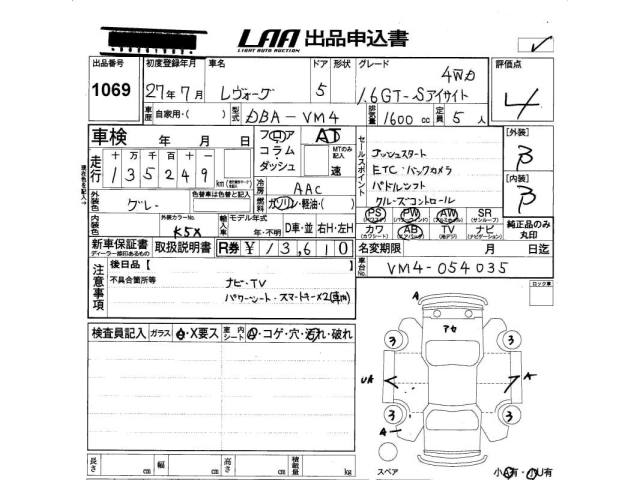 LAA 出品申込書
LIGHT AUTO AUCTION
出品番号 初度登録年月 車名 ドア 形状 グレード 評価点
1069 27年7月 レヴォーグ 5 1.6GT-Sアイサイト 4WD 4
車歴 自家用・( ) 型式 DBA-VM4 排気量 1600cc 定員 5人
車検 年 月 日 フロア コラム ダッシュ AT MTのみ記入 速
走行 十 万 千 百 十 一
135249 km
セールスポイント
プッシュスタート
ETC・バックカメラ
パドルシフト
クルーズコントロール
[外装] B
[内装] B
冷房 AAC
燃料 ガソリン・軽油・( )
外装色 グレー 色替車は色替と記入
内装色 外装カラーNo. K5X 輸入車 モデル年式 年・不明 D車・並 右H・左H
PS (パワステ) PW (パワーウィンド) AW (アルミホイル) SR (サンルーフ)
カワ (カワシート) AB (エアバック) TV (地デジ) ナビ (ナビゲーション)
純正品のみ丸印
新車保証書 取扱説明書 R券 ¥13,610 名変期限 月 日迄
ディーラー印あるもの
車台No. VM4-054035
注意事項
後日品【
不具合箇所等 ナビ・TV
パワーシート・スマートキーX2(車内)
ロック車
検査員記入 ガラス A・X要ス 車内シート A・コゲ・穴・汚れ・破れ
A
アセ
3 3
UA A
3 3
A
長さ cm 幅 cm 高さ cm 積載量 kg
スペア
小A有・小U有